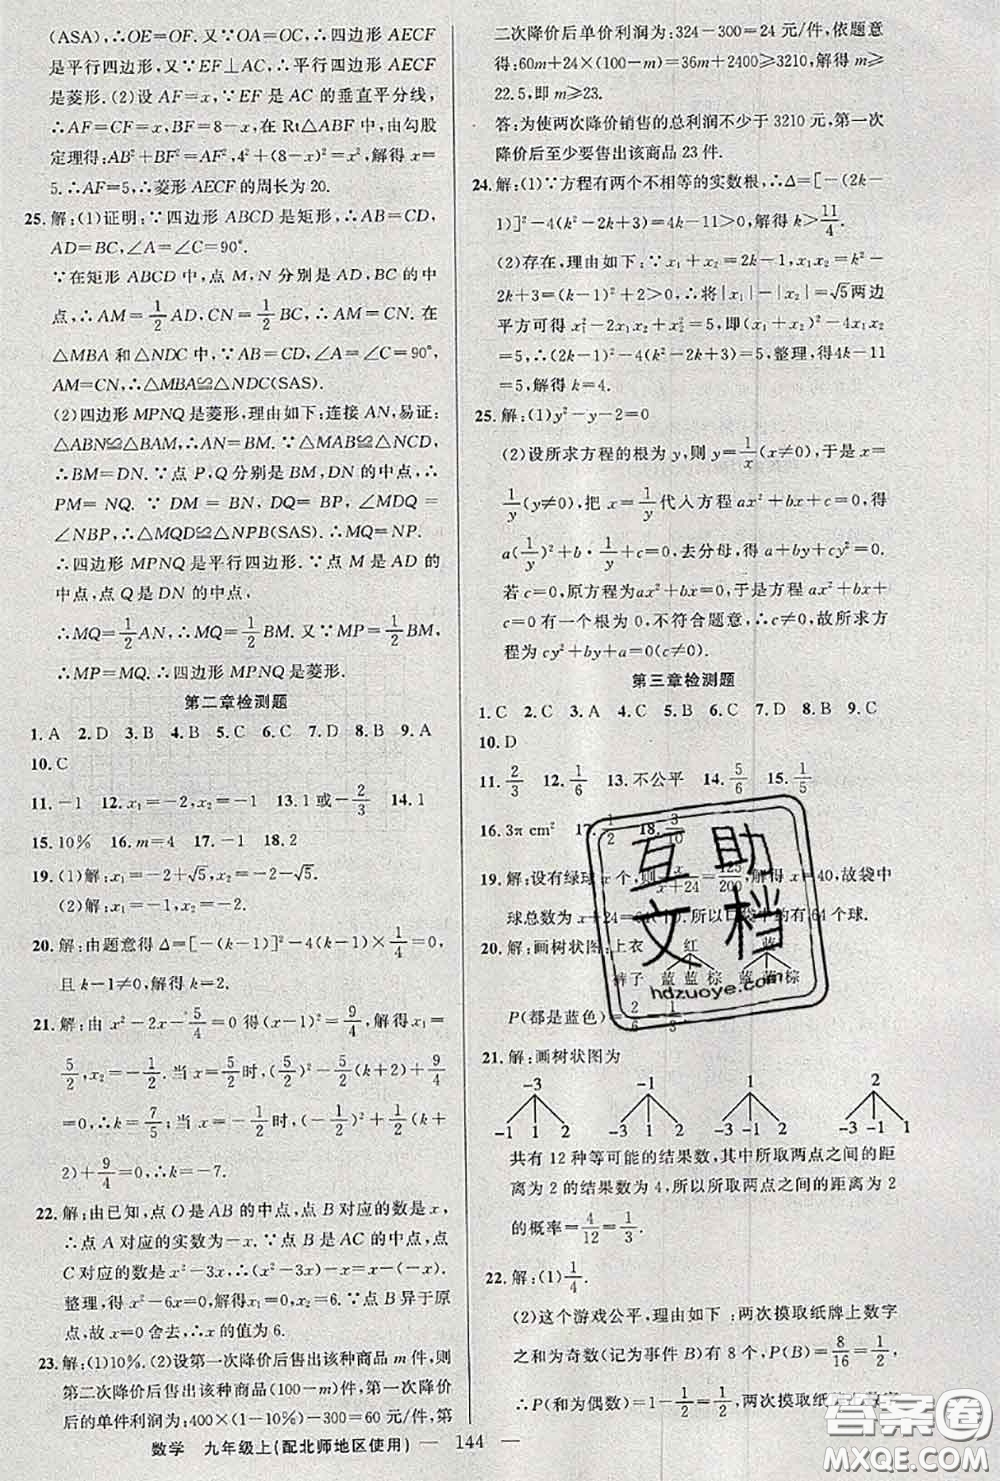 (ASA),∴OE=OF.又∵OA=OC,∴四边形 AECF
是平行四边形,又∵EF⊥AC,∴平行四边形 AECF
是菱形.(2)设 AF=x,∵EF 是 AC 的垂直平分线,
∴AF=CF=x,BF=8-x,在 Rt△ABF 中,由勾股
定理得:AB²+BF²=AF²,4²+(8-x)²=x²,解得 x=
5.∴AF=5,∴菱形 AECF 的周长为 20.
25.解:(1)证明:∵四边形 ABCD 是矩形,∴AB=CD,
AD=BC,∠A=∠C=90°.
∵在矩形 ABCD 中,点 M,N 分别是 AD,BC 的中
点,∴AM=1/2 AD,CN=1/2 BC,∴AM=CN. 在
△MBA 和△NDC 中,∵AB=CD,∠A=∠C=90°,
AM=CN,∴△MBA≌△NDC(SAS).
(2)四边形 MPNQ 是菱形,理由如下:连接 AN,易证:
△ABN≌△BAM,∴AN=BM.∵△MAB≌△NDC,
∴BM=DN.∵点 P,Q 分别是 BM,DN 的中点,∴
PM=NQ. ∵ DM=BN,DQ=BP,∠MDQ=
∠NBP,∴△MQD≌△NPB(SAS).∴MQ=NP.
∴四边形 MPNQ 是平行四边形.∵点 M 是 AD 的
中点,点 Q 是 DN 的中点,
∴MQ=1/2 AN,∴MQ=1/2 BM.又∵MP=1/2 BM,
∴MP=MQ.∴四边形 MPNQ 是菱形.
第二章检测题
1.A 2.D 3.B 4.B 5.C 6.C 7.B 8.B 9.A
10.C
11.-1 12.x₁=-2,x₂=-1 13.1 或-2/3 14.1
15.10% 16.m=4 17.-1 18.2
19.(1)解:x₁=-2+√5,x₂=-2-√5.
(2)解:x₁=2,x₂=-1.
20.解:由题意得 Δ=[-(k-1)]²-4(k-1)×1/4=0,
且 k-1≠0,解得 k=2.
21.解:由 x²-2x-5/4=0 得(x-1)²=9/4,解得 x₁=
5/2,x₂=-1/2.当 x=5/2时,(5/2)²-5/2(k+2)+9/4
=0,∴k=7/5;当 x=-1/2时,(-1/2)²+1/2(k+
2)+9/4=0,∴k=-7.
22.解:由已知,点 O 是 AB 的中点,点 B 对应的数是 x,
∴点 A 对应的实数为-x.∵点 B 是 AC 的中点,点
C 对应的数是 x²-3x,∴(x²-3x)-x=x-(-x).
整理,得 x²-6x=0,解得x₁=0,x₂=6.∵点 B 异于原
点,故 x=0 舍去,∴x 的值为 6.
23.解:(1)10%.(2)设第一次降价后售出该种商品 m 件,则
第二次降价后售出该种商品(100-m)件,第一次降价后
的单件利润为:400×(1-10%)-300=60 元/件,第
二次降价后单价利润为:324-300=24 元/件,依题意
得:60m+24×(100-m)=36m+2400≥3210,解得 m≥
22.5,即 m≥23.
答:为使两次降价销售的总利润不少于 3210 元,第一次
降价后至少要售出该商品 23 件.
24.解:(1)∵方程有两个不相等的实数根,∴Δ=[-(2k-
1)]²-4(k²-2k+3)=4k-11>0,解得 k>11/4.
(2)存在,理由如下:∵x₁+x₂=2k-1,x₁x₂=k²-
2k+3=(k-1)²+2>0,∴将|x₁|-|x₂|=√5两边
平方可得 x₁²-2x₁x₂+x₂²=5,即(x₁+x₂)²-4x₁x₂
=5,∴(2k-1)²-4(k²-2k+3)=5,整理,得4k-11
=5,解得 k=4.
25.解:(1)y²-y-2=0
(2)设所求方程的根为 y,则 y=1/x(x≠0),于是 x=
1/y(y≠0),把 x=1/y代入方程 ax²+bx+c=0,得
a(1/y)²+b·1/y+c=0,去分母,得 a+by+cy²=0.
若 c=0,原方程为 ax²+bx=0,于是方程 ax²+bx+
c=0 有一个根为 0,不符合题意,∴c≠0,故所求方
程为 cy²+by+a=0(c≠0).
第三章检测题
1.C 2.B 3.B 4.D 5.C 6.C 7.D 8.B 9.C
10.D
11.2/3 12.1/6 13.不公平 14.5/6 15.1/5
16.3π cm² 17.1/2 18.3/10
19.解:设有绿球 x 个,则x/(x+24)=125/200,解得 x=40,故袋中
球总数为 x+24=64(个).所以口袋中约有 64 个球.
20.解:画树状图:上衣 红 蓝
裤子 蓝 蓝 棕 蓝 蓝 棕
P(都是蓝色)=2/6=1/3.
21.解:画树状图为
-3 -1 1 2
-1 1 2 -3 1 2 -3 -1 2 -3 -1 1
共有 12 种等可能的结果数,其中所取两点之间的距
离为 2 的结果数为 4,所以所取两点之间的距离为 2
的概率=4/12=1/3.
22.解:(1)1/4.
(2)这个游戏公平,理由如下:两次摸取纸牌上数字
之和为奇数(记为事件 B)有 8 个,P(B)=8/16=1/2,
∴P(和为偶数)=1-1/2=1/2,两次摸取纸牌上数字
数学 九年级上(配北师地区使用) — 144 —
互助
文档
hdzuoye.com
答案圈
MXQE.COM